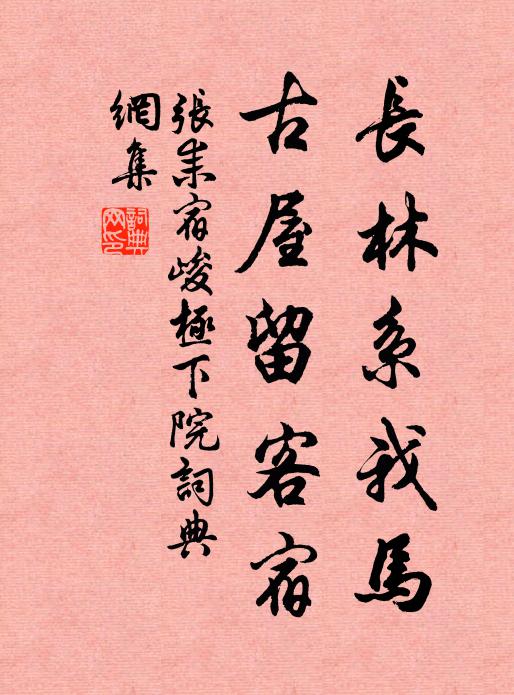 長林系我馬
古屋留客宿
張耒宿峻極下院詞典
網集
詞典網印